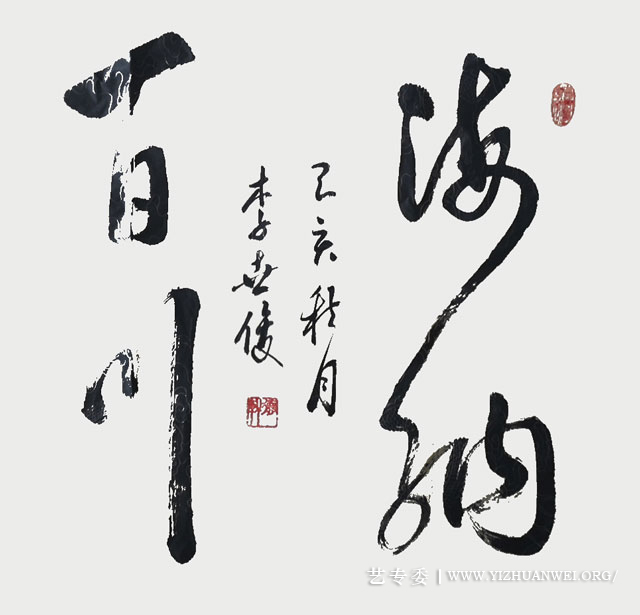 海纳
百川
己亥秋月
李世俊
艺专委 | WWW.YIZHUANWEI.ORG/